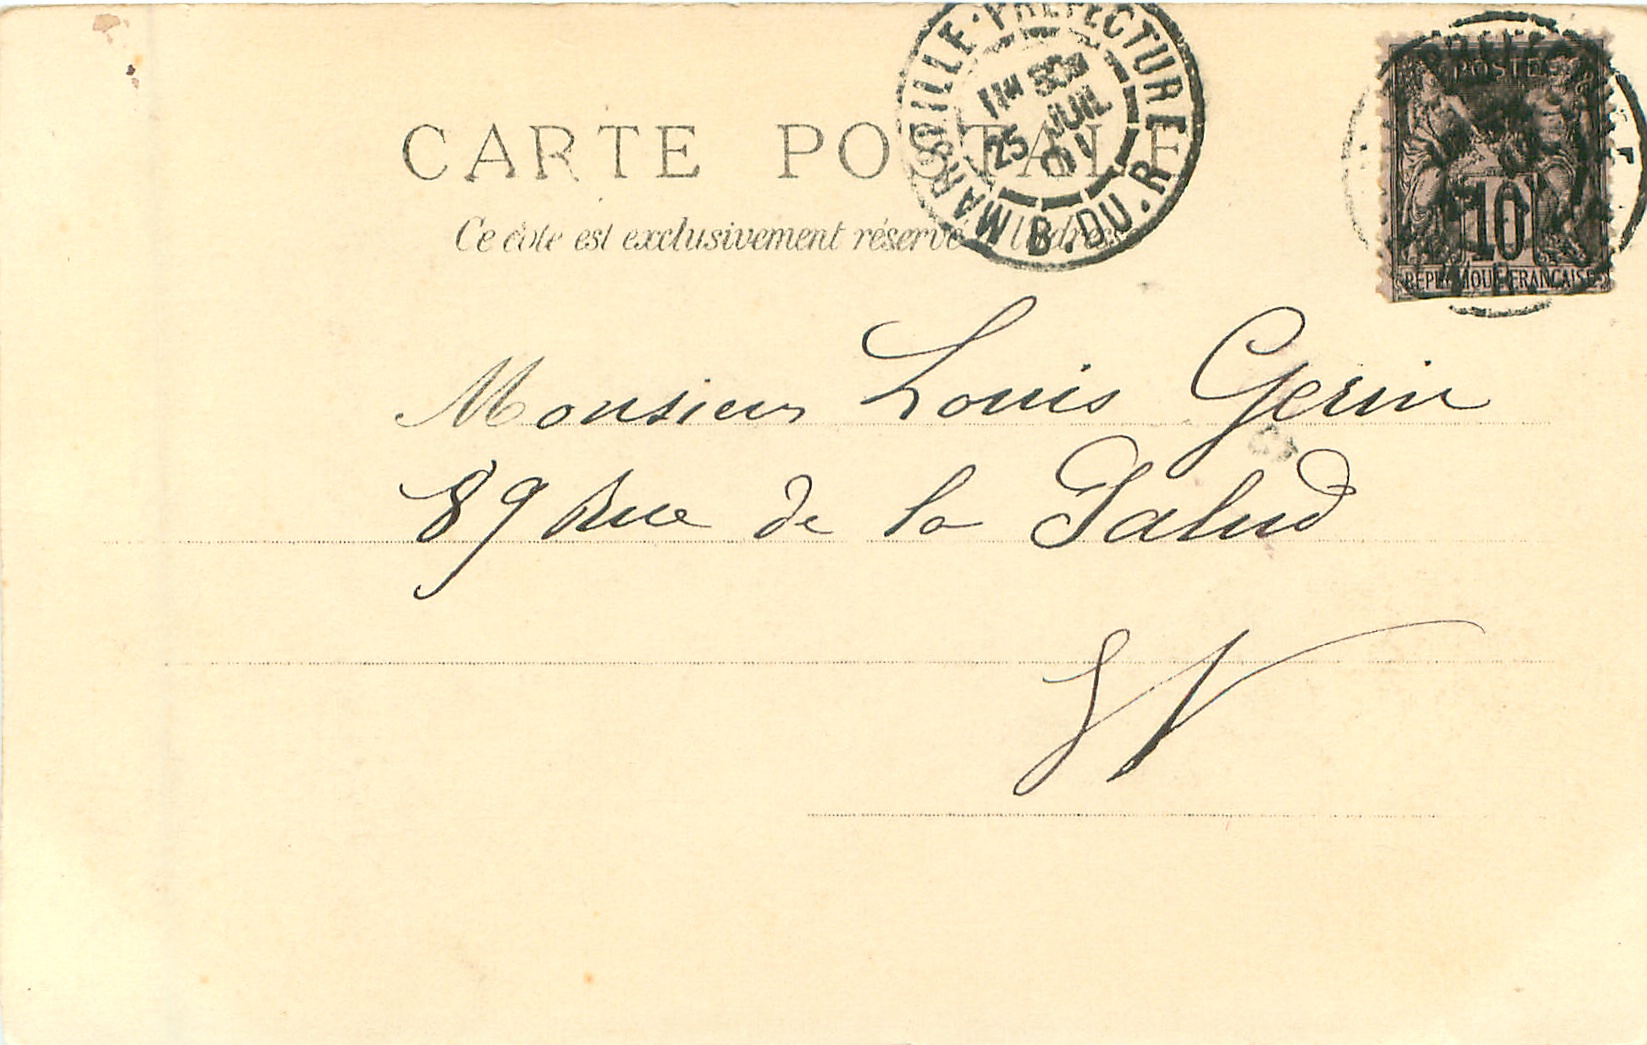 CARTE POSTALE
Ce côté est exclusivement réservé à l'adresse
MARSEILLE · PREFECTURE
B. DU. R.
11H 50M
25 JUIL
01
POSTES
10
REPUBLIQUE FRANÇAISE
Monsieur Louis Gerin
89 Rue de la Palud